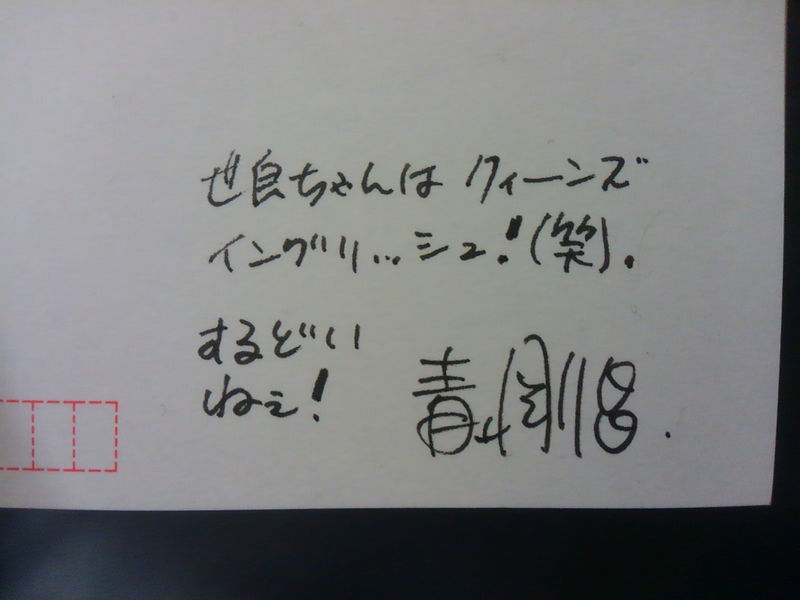 世良ちゃんは クィーンズ
イングリッシュ!(笑).
するどい
ねぇ!
青山剛昌.